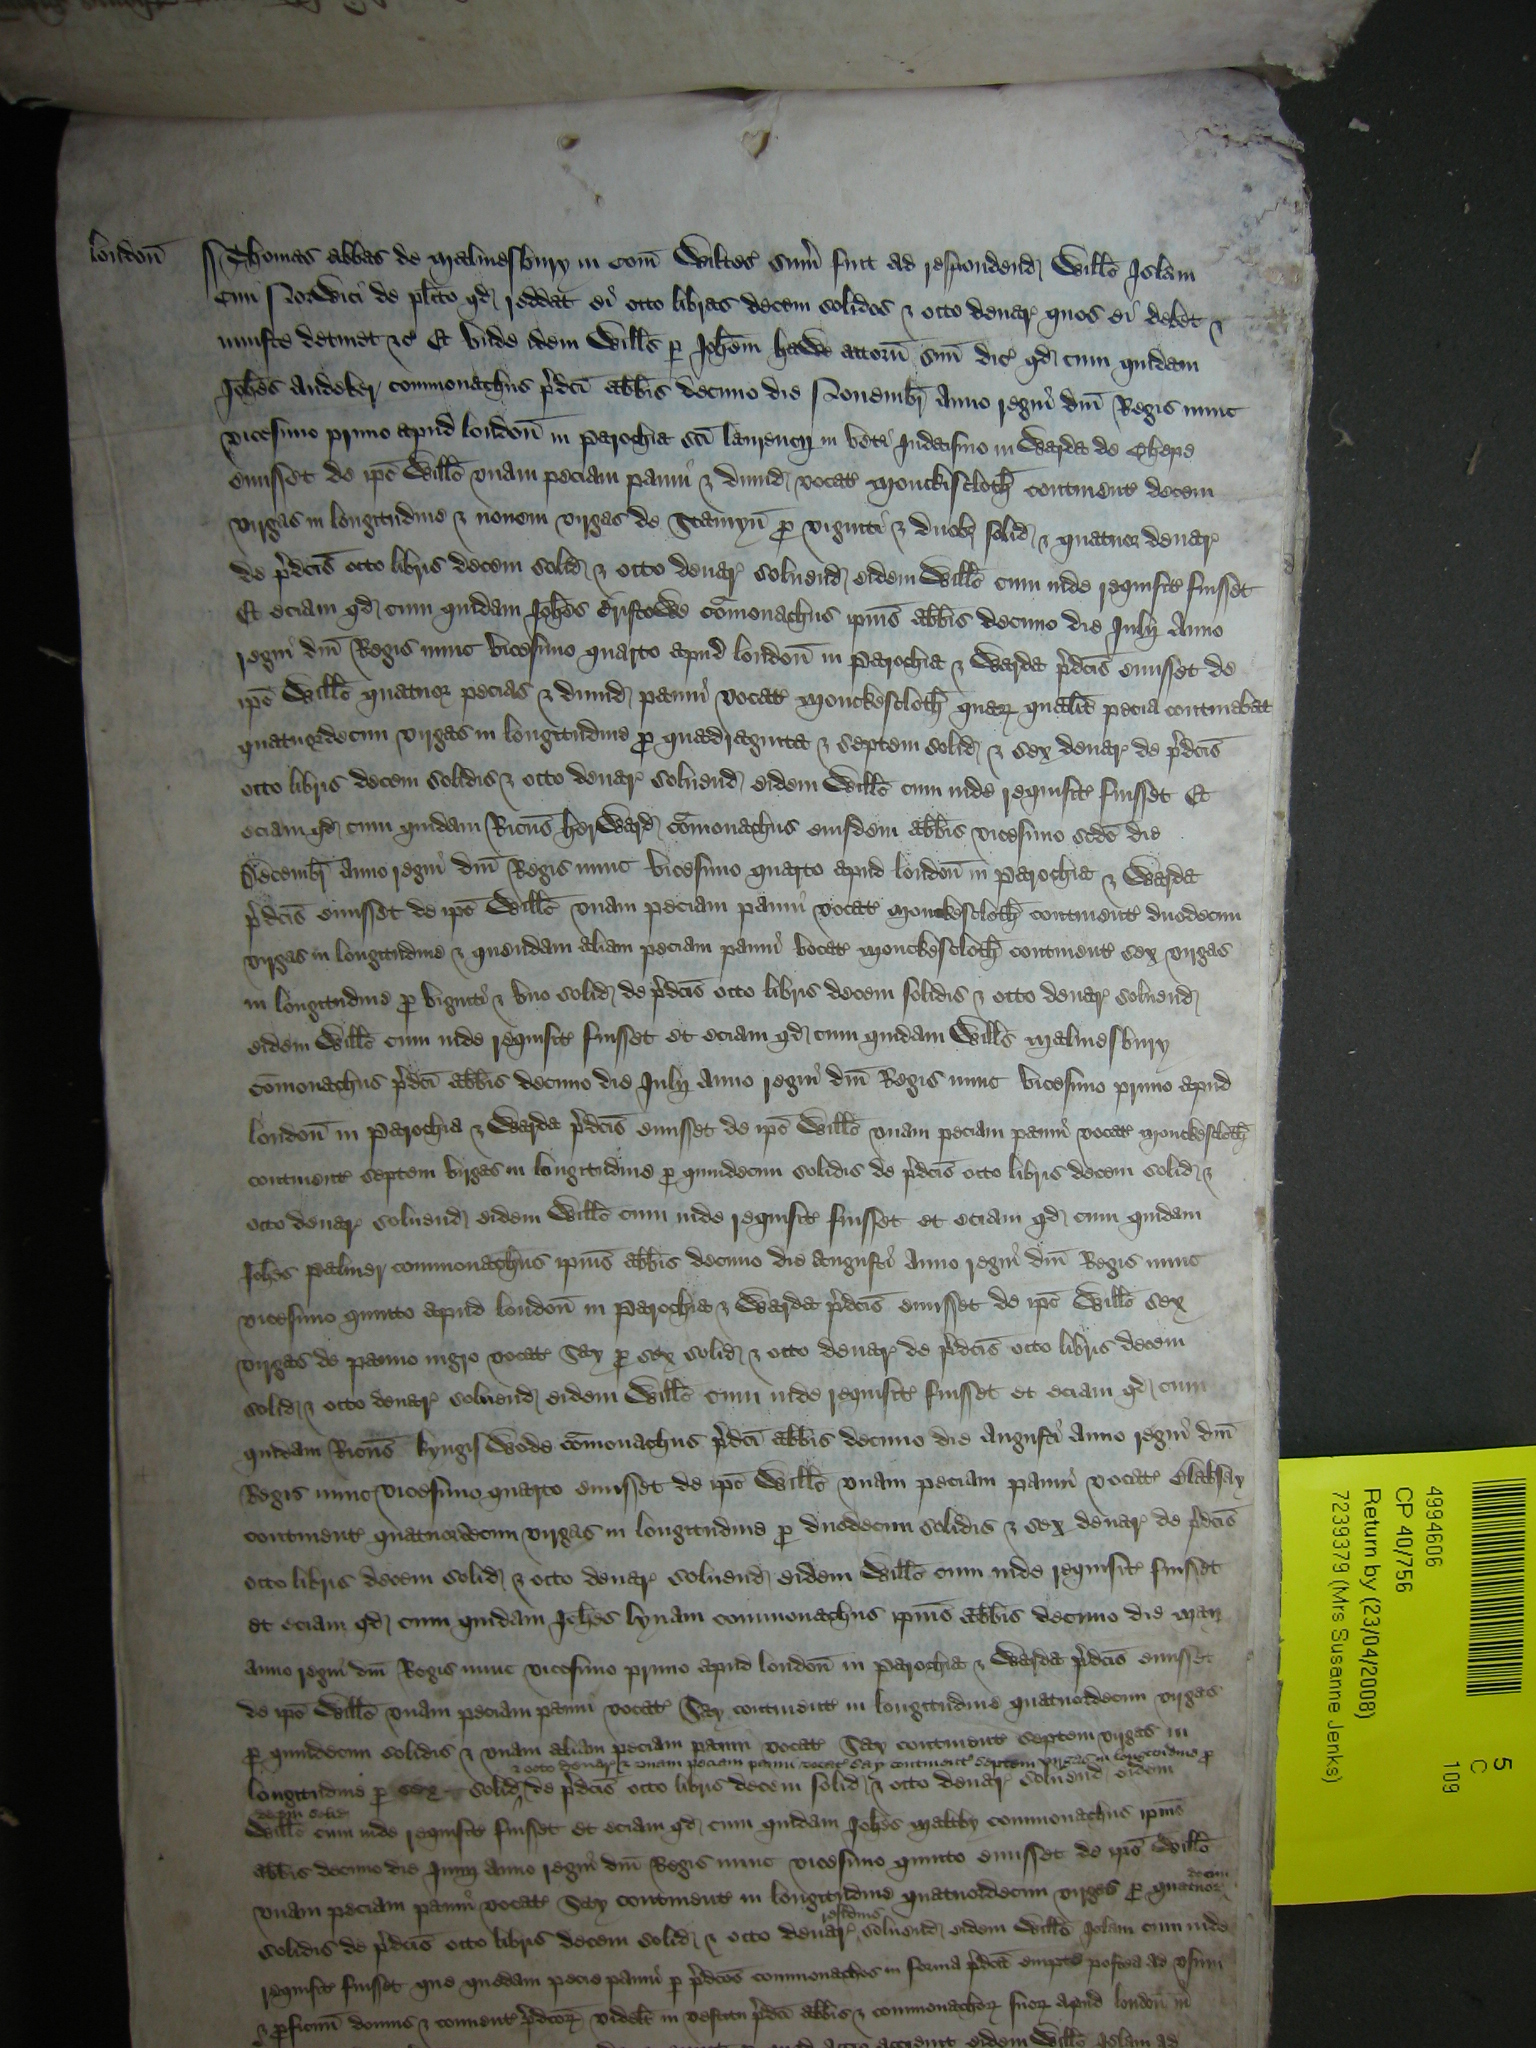 londoñ Thomas abbas de Malmesbury in Com̃ Wiltes sum̃ fuit ad respondend Willo Islam
Civi Norwici de plito qd reddat ei octo libras decem solidos & octo denar quos ei debet &
iniuste detinet &c Et unde idem Willus p Johem hawe attorn suu dic qd cum quidam
Johes Andever commonachus pdci abbis decimo die Novembr anno regni dni Regis nunc
vicesimo primo apud londoñ in parochia sci laurencij in veti Judaismo in Warda de Chepe
emisset de ipo Willo unam peciam panni & dimid vocat Monckiscloth continent decem
virgas in longitudine & novem virgas de Stamyn p viginti & duob solid & quatuor denar
de pdcis octo libris decem solid & octo denar solvend eidem Willo cum inde requisit fuisset
Et eciam qd cum quidam Johes Bristowe comonachus ipius abbis decimo die Julij Anno
regni dni Regis nunc vicesimo quarto apud londoñ in parochia & Warda pdcis emisset de
ipo Willo quatuor pecias & dimid panni vocat Monckescloth quar qualit pecia continebat
quatuordecim virgas in longitudine p quadraginta & septem solid & sex denar de pdcis
octo libris decem solidis & octo denar solvend eidem Willo cum inde requisit fuisset Et
eciam qd cum quidam Ricus herward comonachus eiusdem abbis vicesimo scdo die
Decembr anno regni dni Regis nunc vicesimo quarto apud londoñ in parochia & Warda
pdcis emisset de ipo Willo unam peciam panni vocat Monckescloth continent duodecim
virgas in longitudine & quendam aliam peciam panni vocat Monckescloth continent sex virgas
in longitudine p viginti & uno solid de pdcis octo libris decem solidis & octo denar solvend
eidem Willo cum inde requisit fuisset et eciam qd cum quidam Willus Malmesbury
comonachus pdci abbis decimo die Julij anno regni dni Regis nunc vicesimo primo apud
londoñ in parochia & Warda pdcis emisset de ipo Willo unam peciam panni vocat Monckescloth
continent septem virgas in longitudine p quindecim solidis de pdcis octo libris decem solid &
octo denar solvend eidem Willo cum inde requisit fuisset et eciam qd cum quidam
Johes Palmer commonachus ipius abbis decimo die Augusti anno regni dni Regis nunc
vicesimo quinto apud londoñ in parochia & Warda pdcis emisset de ipo Willo sex
virgas de panno nigro vocat Say p sex solid & octo denar de pdcis octo libris decem
solid & octo denar solvend eidem Willo cum inde requisit fuisset et eciam qd cum
quidam Ricus Kyngiswode comonachus pdci abbis decimo die Augusti anno regni dni
Regis nunc vicesimo quarto emisset de ipo Willo unam peciam panni vocat Blaksay
continent quatuordecim virgas in longitudine p duodecim solidis & sex denar de pdcis
octo libris decem solid & octo denar solvend eidem Willo cum inde requisit fuisset
et eciam qd cum quidam Johes lynam commonachus ipius abbis decimo die Maij
anno regni dni Regis nunc vicesimo primo apud londoñ in parochia & Warda pdcis emisset
de ipo Willo unam peciam panni vocat Say continent in longitudine quatuordecim virgas
p quindecim solidis & unam aliam peciam panni vocat Say continent septem virgas in
& octo denar & unam peciam panni vocat Say continent septem virgas in longitudine p
longitudine p sex solid de pdcis octo libris decem solid & octo denar solvend eidem
decem solid
Willo cum inde requisit fuisset et eciam qd cum quidam Johes Maltby commonachus ipius
abbis decimo die Junij anno regni dni Regis nunc vicesimo quinto emisset de ipo Willo
unam peciam panni vocat Say continent in longitudine quatuordecim virgas p quatuor decim
solidis de pdcis octo libris decem solid & octo denar residuis solvend eidem Willo Islam cum inde
requisit fuisset que quedam pecie panni p pdcos commonachos in forma pdca empte postea ad usum
& proficuum domus & convent pdcor videlt in vestitu pdci abbis & commonachor suor apud londoñ in
eidem Willo Islam ad
5
C
109
4994606
CP 40/756
Return by (23/04/2008)
7239379 (Mrs Susanne Jenks)